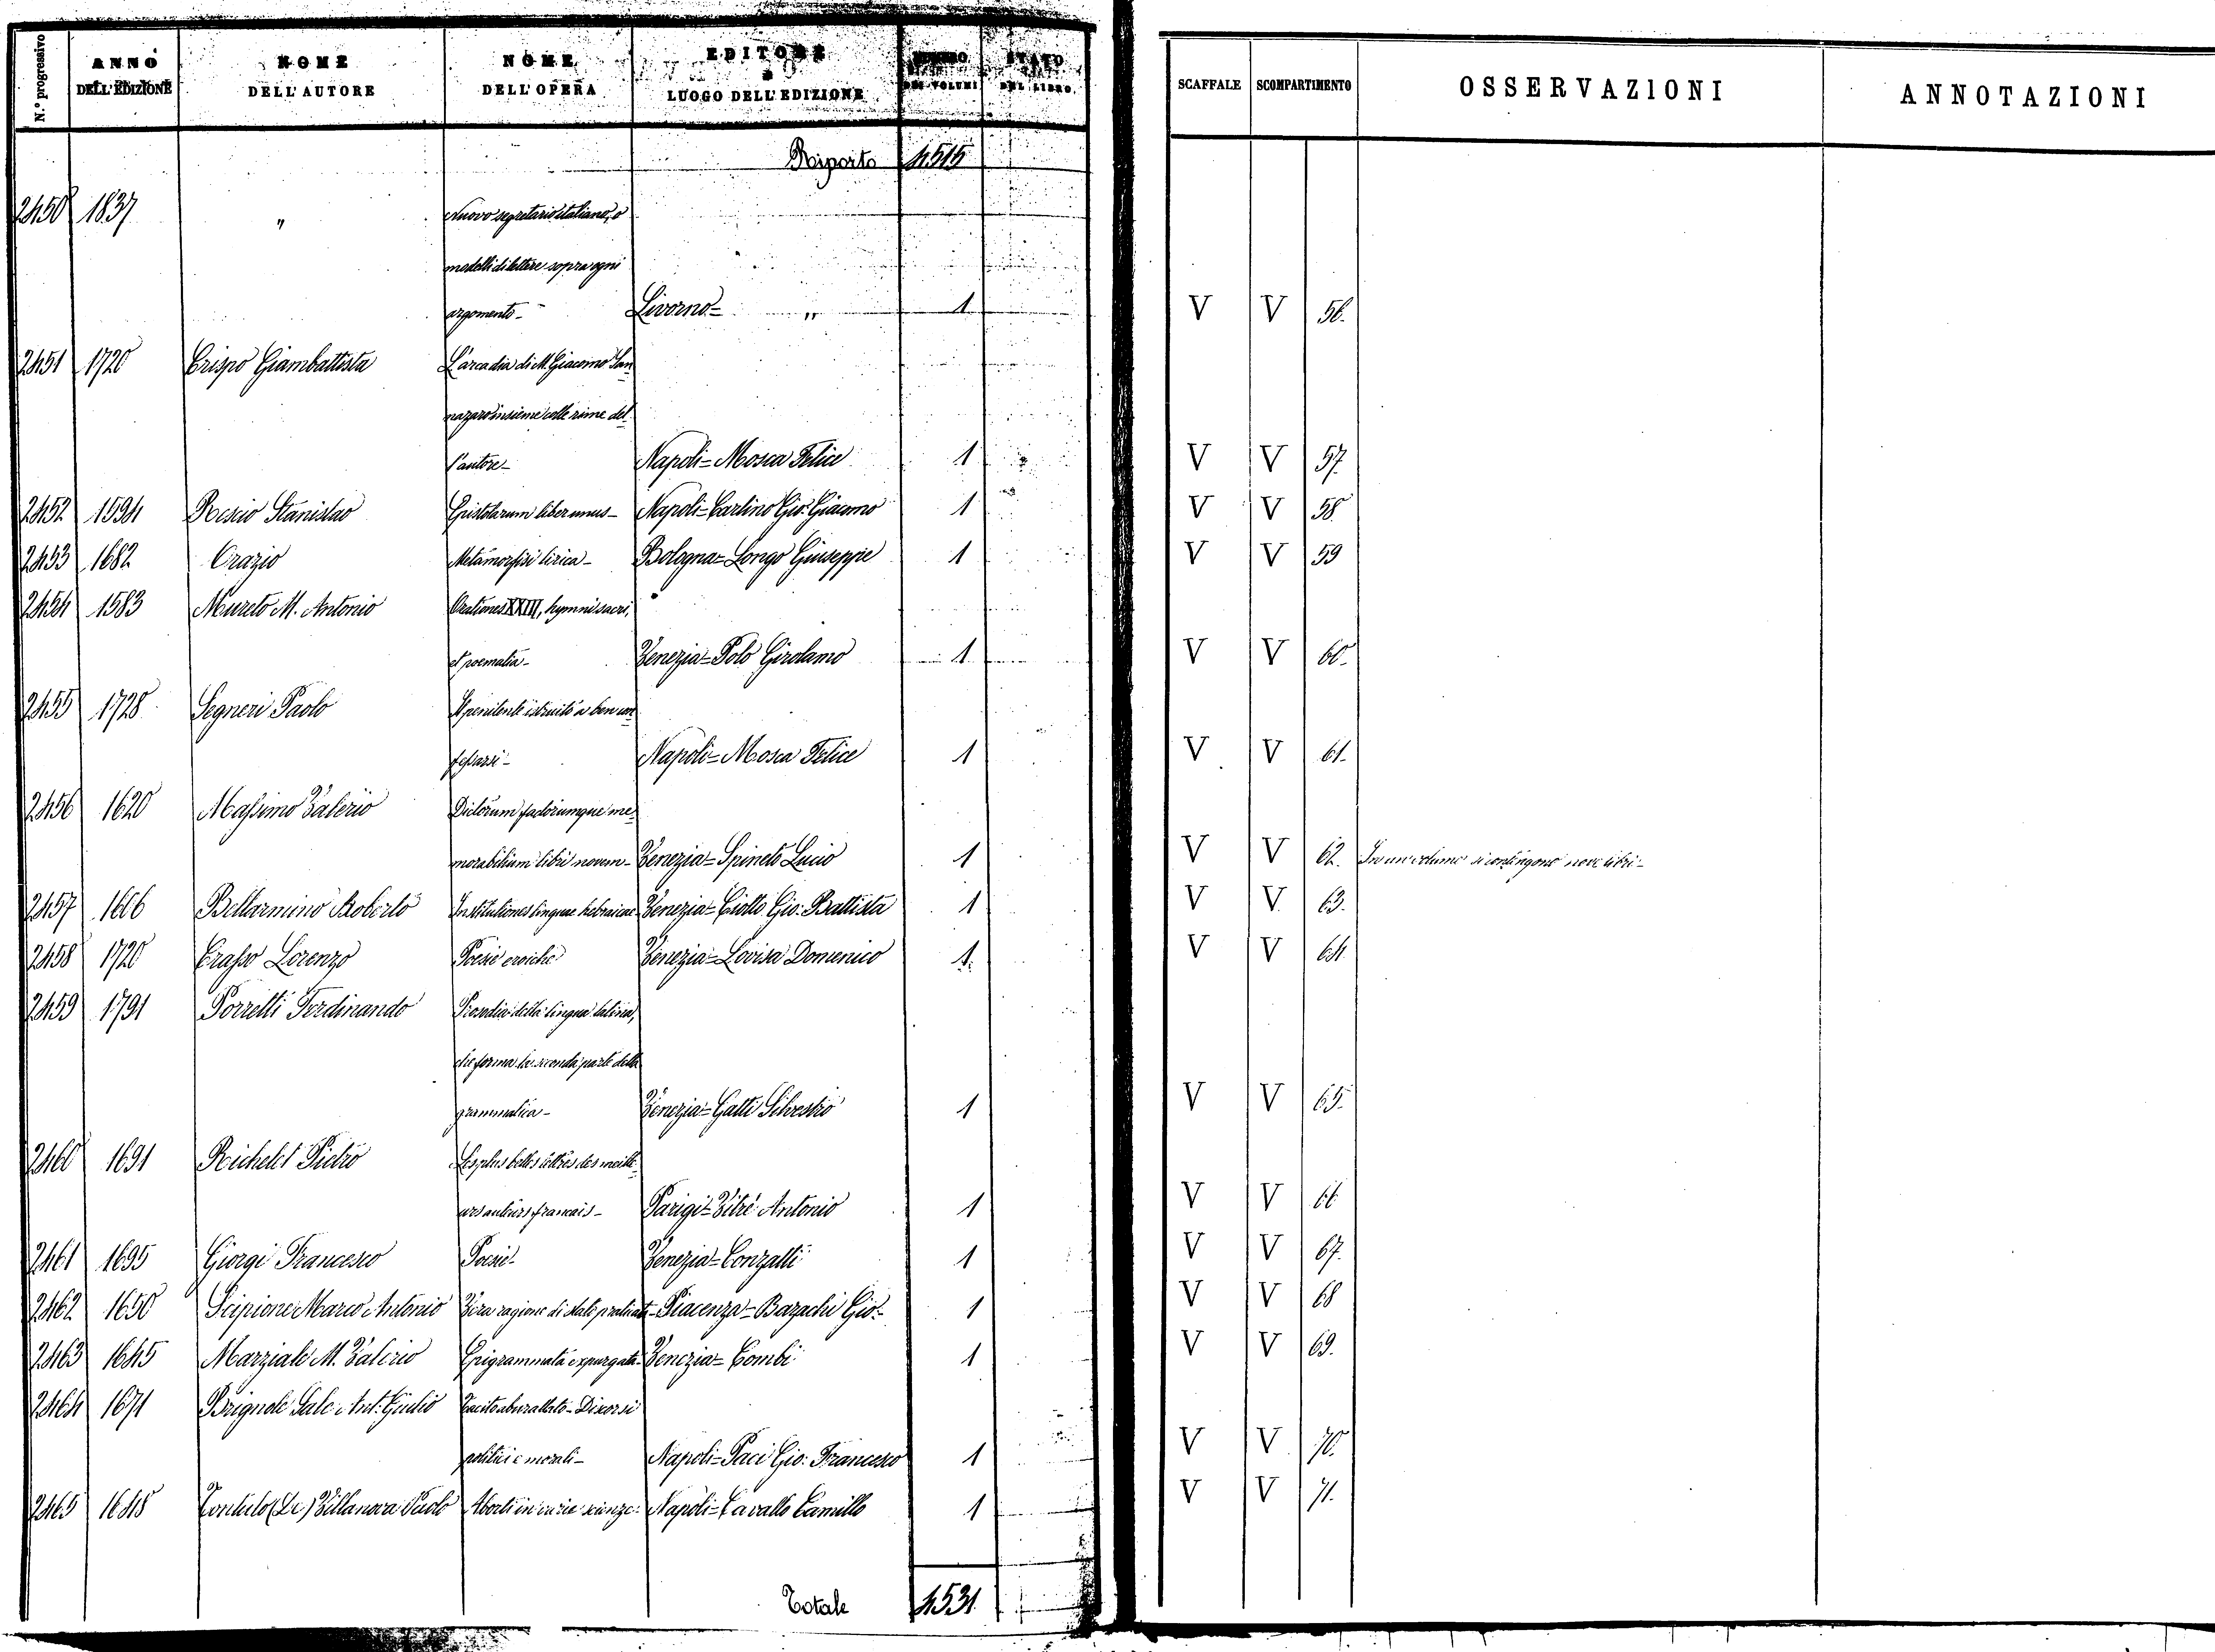 N.° progressivo | ANNO DELL'EDIZIONE | NOME DELL'AUTORE | NOME DELL'OPERA | EDITORE e LUOGO DELL'EDIZIONE | NUMERO DEI VOLUMI | STATO DEL LIBRO | SCAFFALE | SCOMPARTIMENTO | OSSERVAZIONI | ANNOTAZIONI
Riporto 4515
2450 1837 " Nuovo segretario italiano, o
modelli di lettere sopra ogni
argomento - Livorno = " 1 V V 56.
2451 1720 Crispo Giambattista L'arcadia di M. Giacomo San
nazaro insieme colle rime del
l'autore - Napoli = Mosca Felice 1 V V 57.
2452 1594 Rescio Stanislao Epistolarum liber unus - Napoli = Carlino Gio: Giacomo 1 V V 58.
2453 1682 Orazio Metamorfosi lirica - Bologna = Longo Giuseppe 1 V V 59
2454 1583 Mureto M. Antonio Orationes XXIII, hymni sacri,
et poematia - Venezia = Polo Girolamo 1 V V 60.
2455 1728 Segneri Paolo Il penitente istruito a ben con
fessarsi - Napoli = Mosca Felice 1 V V 61.
2456 1620 Massimo Valerio Dictorum factorumque me
morabilium libri novem - Venezia = Spineto Lucio 1 V V 62. In un volume si contengono nove libri -
2457 1606 Bellarmino Roberto Institutiones linguae hebraicae Venezia = Ciotto Gio: Battista 1 V V 63.
2458 1720 Crasso Lorenzo Poesie eroiche Venezia = Lovisa Domenico 1. V V 64.
2459 1791 Porretti Ferdinando Prosodia della lingua latina,
che forma la seconda parte della
grammatica - Venezia = Gatti Silvestro 1 V V 65.
2460 1691 Richelet Pietro Les plus belles lettres des meille
urs auteurs francais - Parigi = Vitré Antonio 1 V V 66
2461 1695 Giorgi Francesco Poesie - Venezia = Conzatti 1 V V 67.
2462 1650 Scipione Marco Antonio Vera ragione di stato praticata - Piacenza = Bazachi Gio: 1 V V 68
2463 1645 Marziale M. Valerio Epigrammata expurgata - Venezia = Combi 1 V V 69.
2464 1671 Brignole Sale Ant: Giulio Tacito aburattato - Discorsi
politici e morali - Napoli = Paci Gio: Francesco 1 V V 70.
2465 1648 (Di) Villanova Paolo Aborti in varie scienze - Napoli = Cavallo Camillo 1 V V 71.
Totale 4531